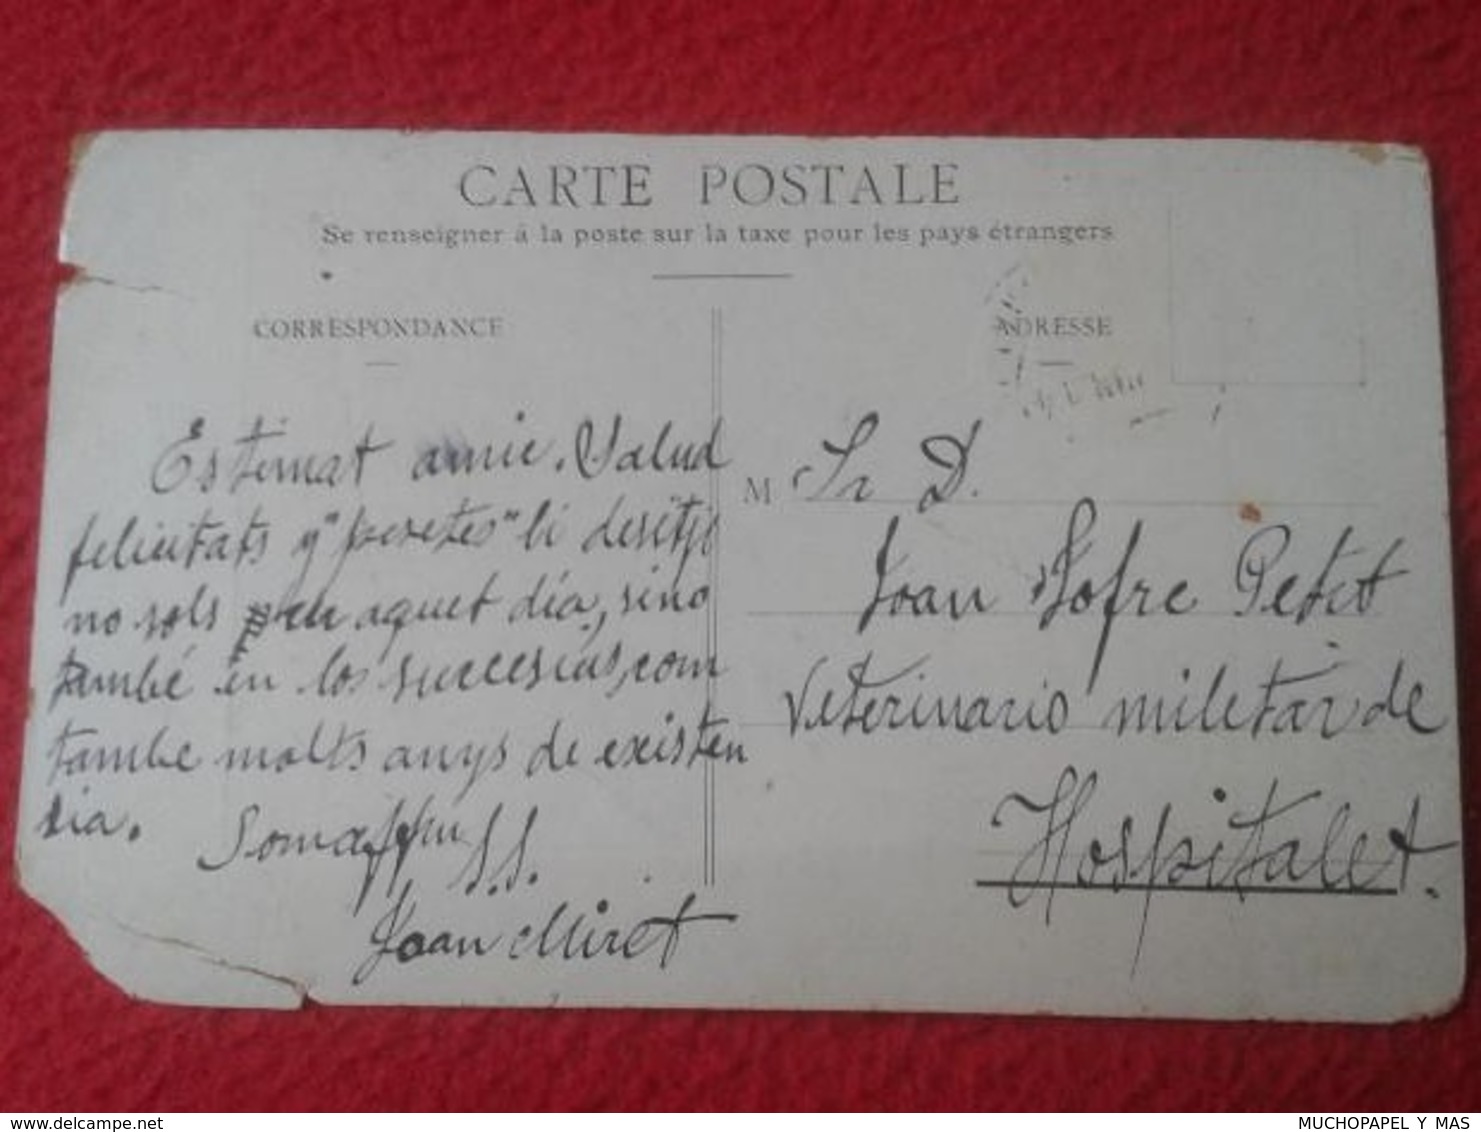 CARTE POSTALE
Se renseigner à la poste sur la taxe pour les pays étrangers
CORRESPONDANCE
Estimat amic. Salud
felicitats y "pesetes" li desitjo
no sols en aquet día, sino
també en los succesius, com
tambe molts anys de existen
sia.
S.S.
Joan Miret
ADRESSE
M Sr D.
Joan Jofre Petit
Veterinario militar de
Hospitalet.
delcampe.net
MUCHOPAPEL Y MAS